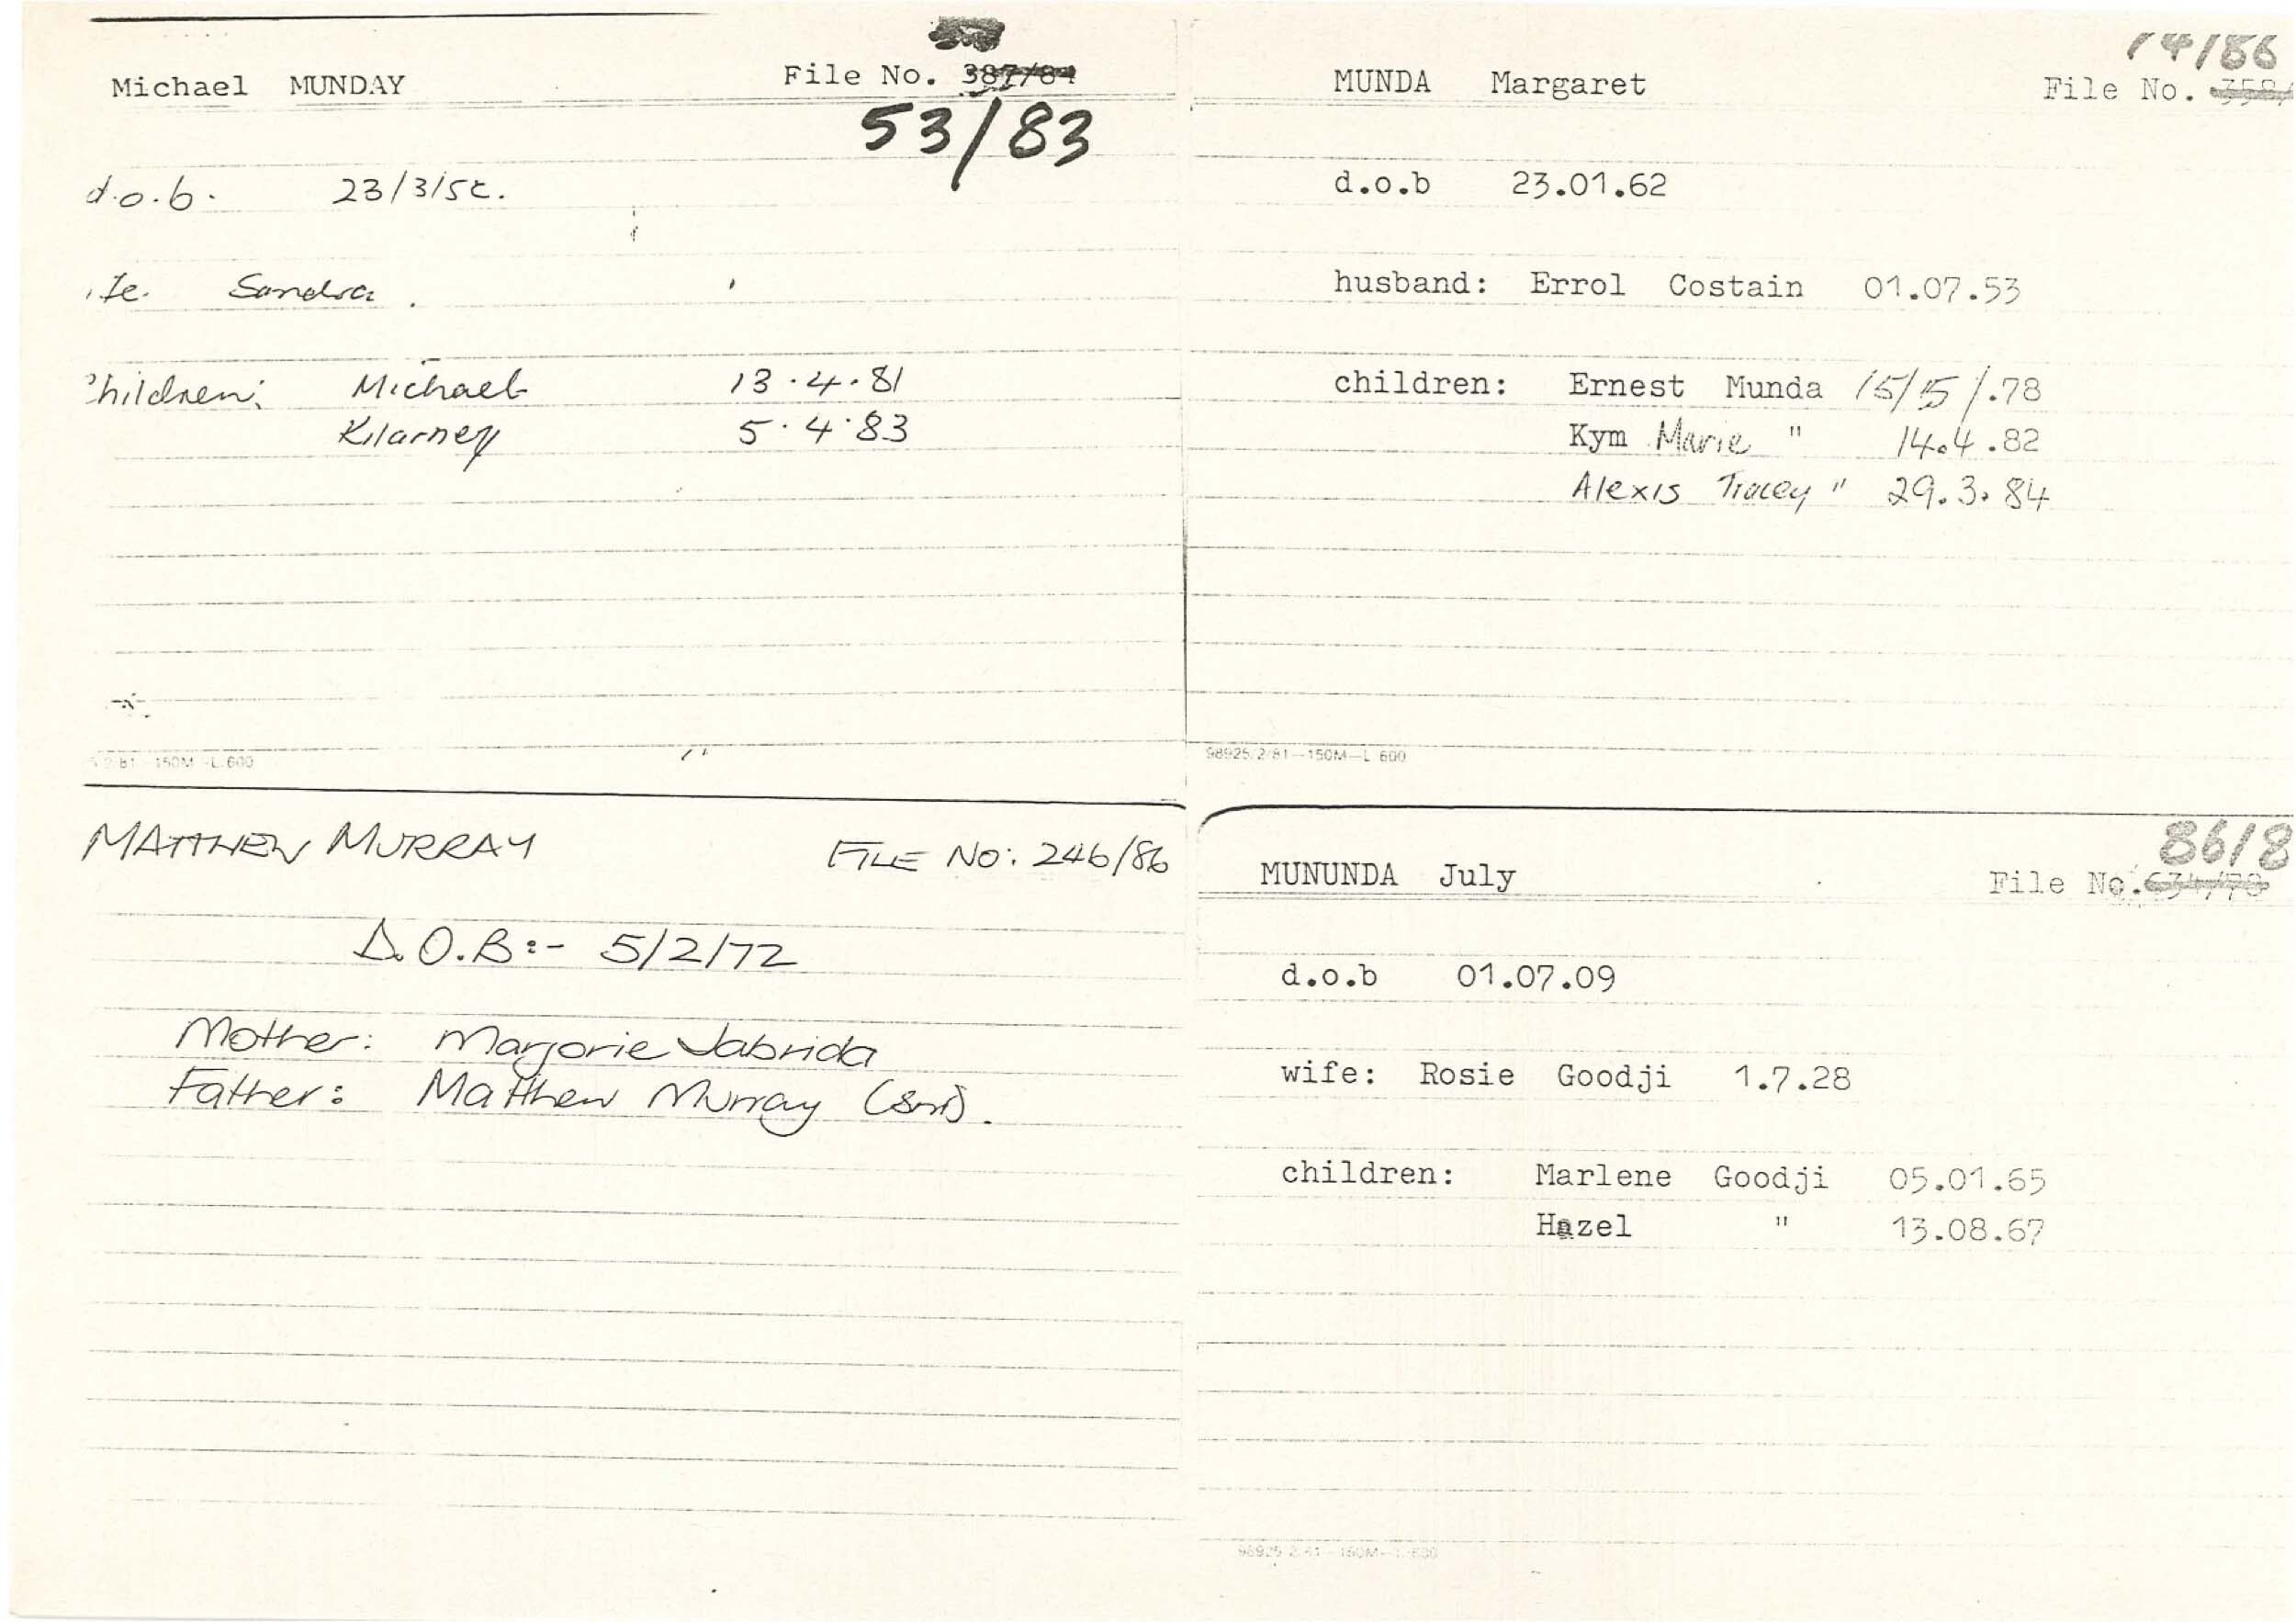 Michael MUNDAY
File No. 387/81
53/83
d.o.b. 23/3/52.
Sandra.
Children: Michael 13.4.81
Kilarney 5.4.83
2/81—150M—L 600
14/86
MUNDA Margaret File No.
d.o.b 23.01.62
husband: Errol Costain 01.07.53
children: Ernest Munda 15/5/.78
Kym Marie " 14.4.82
Alexis Tracey " 29.3.84
98925/2/81—150M—L 600
MATTHEW MURRAY FILE NO: 246/86
D.O.B:- 5/2/72
Mother: Marjorie Jabrida
Father: Matthew Murray (Snr).
86/8
MUNUNDA July File No. 634/78
d.o.b 01.07.09
wife: Rosie Goodji 1.7.28
children: Marlene Goodji 05.01.65
Hazel " 13.08.67
98925/2/81—150M—L 600